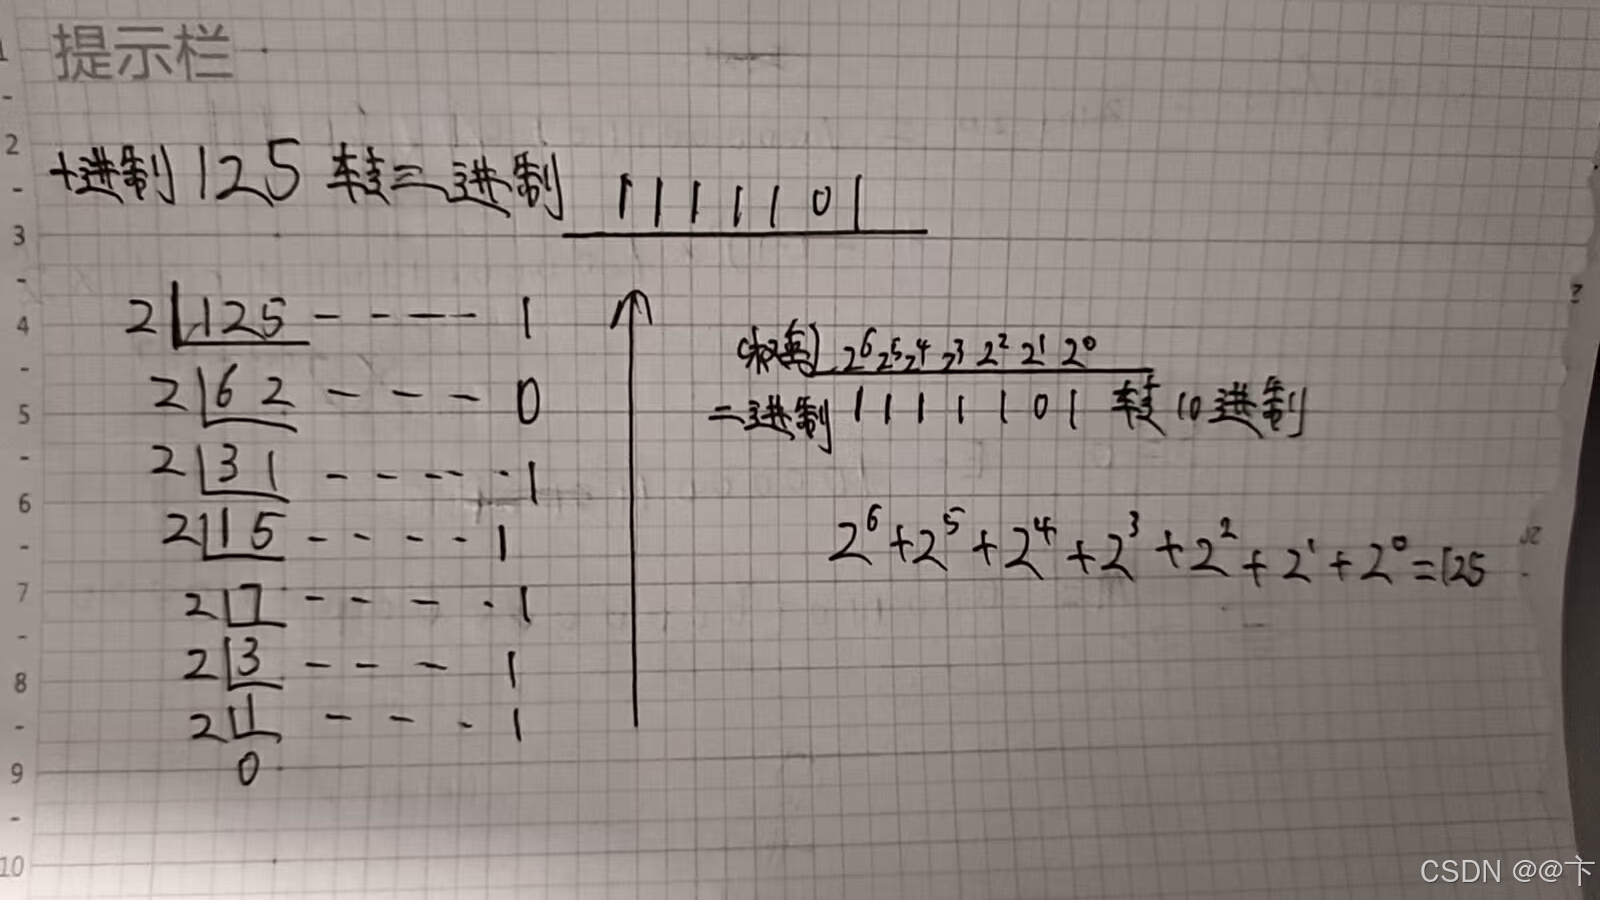 提示栏
十进制 125 转二进制 1111101
2 125 ---- 1
2 62 --- 0
2 31 ---- 1
2 15 ---- 1
2 7 ---- 1
2 3 --- 1
2 1 --- 1
0
2⁶ 2⁵ 2⁴ 2³ 2² 2¹ 2⁰
二进制 1111101 转10进制
2⁶+2⁵+2⁴+2³+2²+2¹+2⁰=125
1
2
3
4
5
6
7
8
9
10
CSDN @@卞